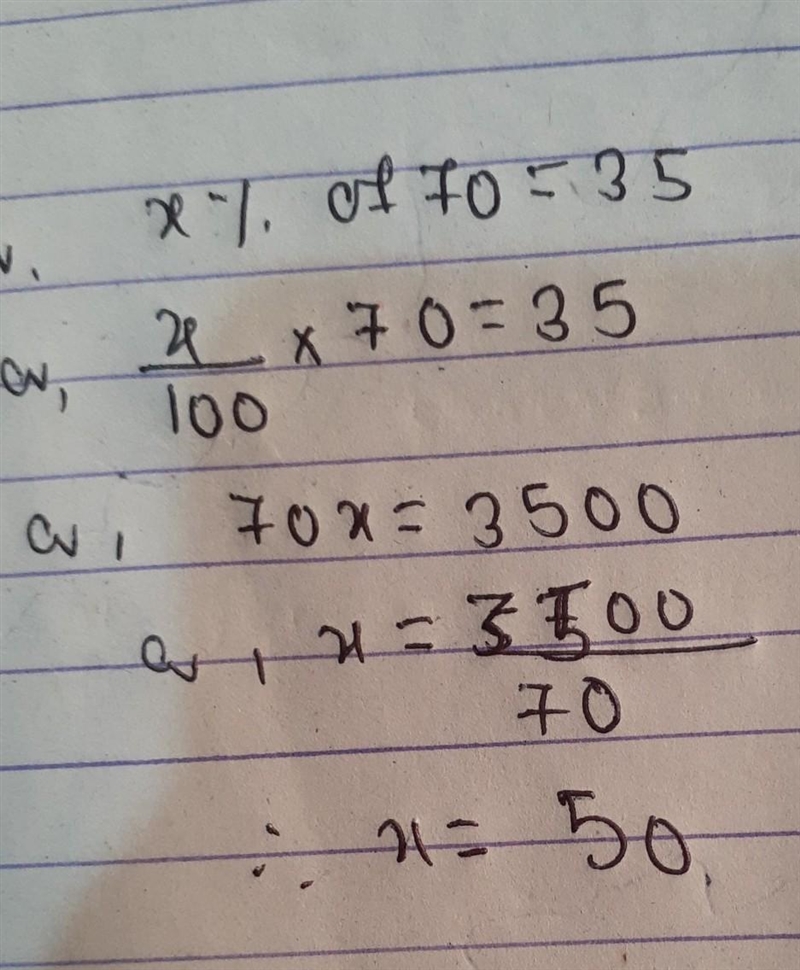 x%. of 70 = 35
or, x/100 × 70 = 35
or, 70x = 3500
or, x = 3500/70
∴ x = 50.